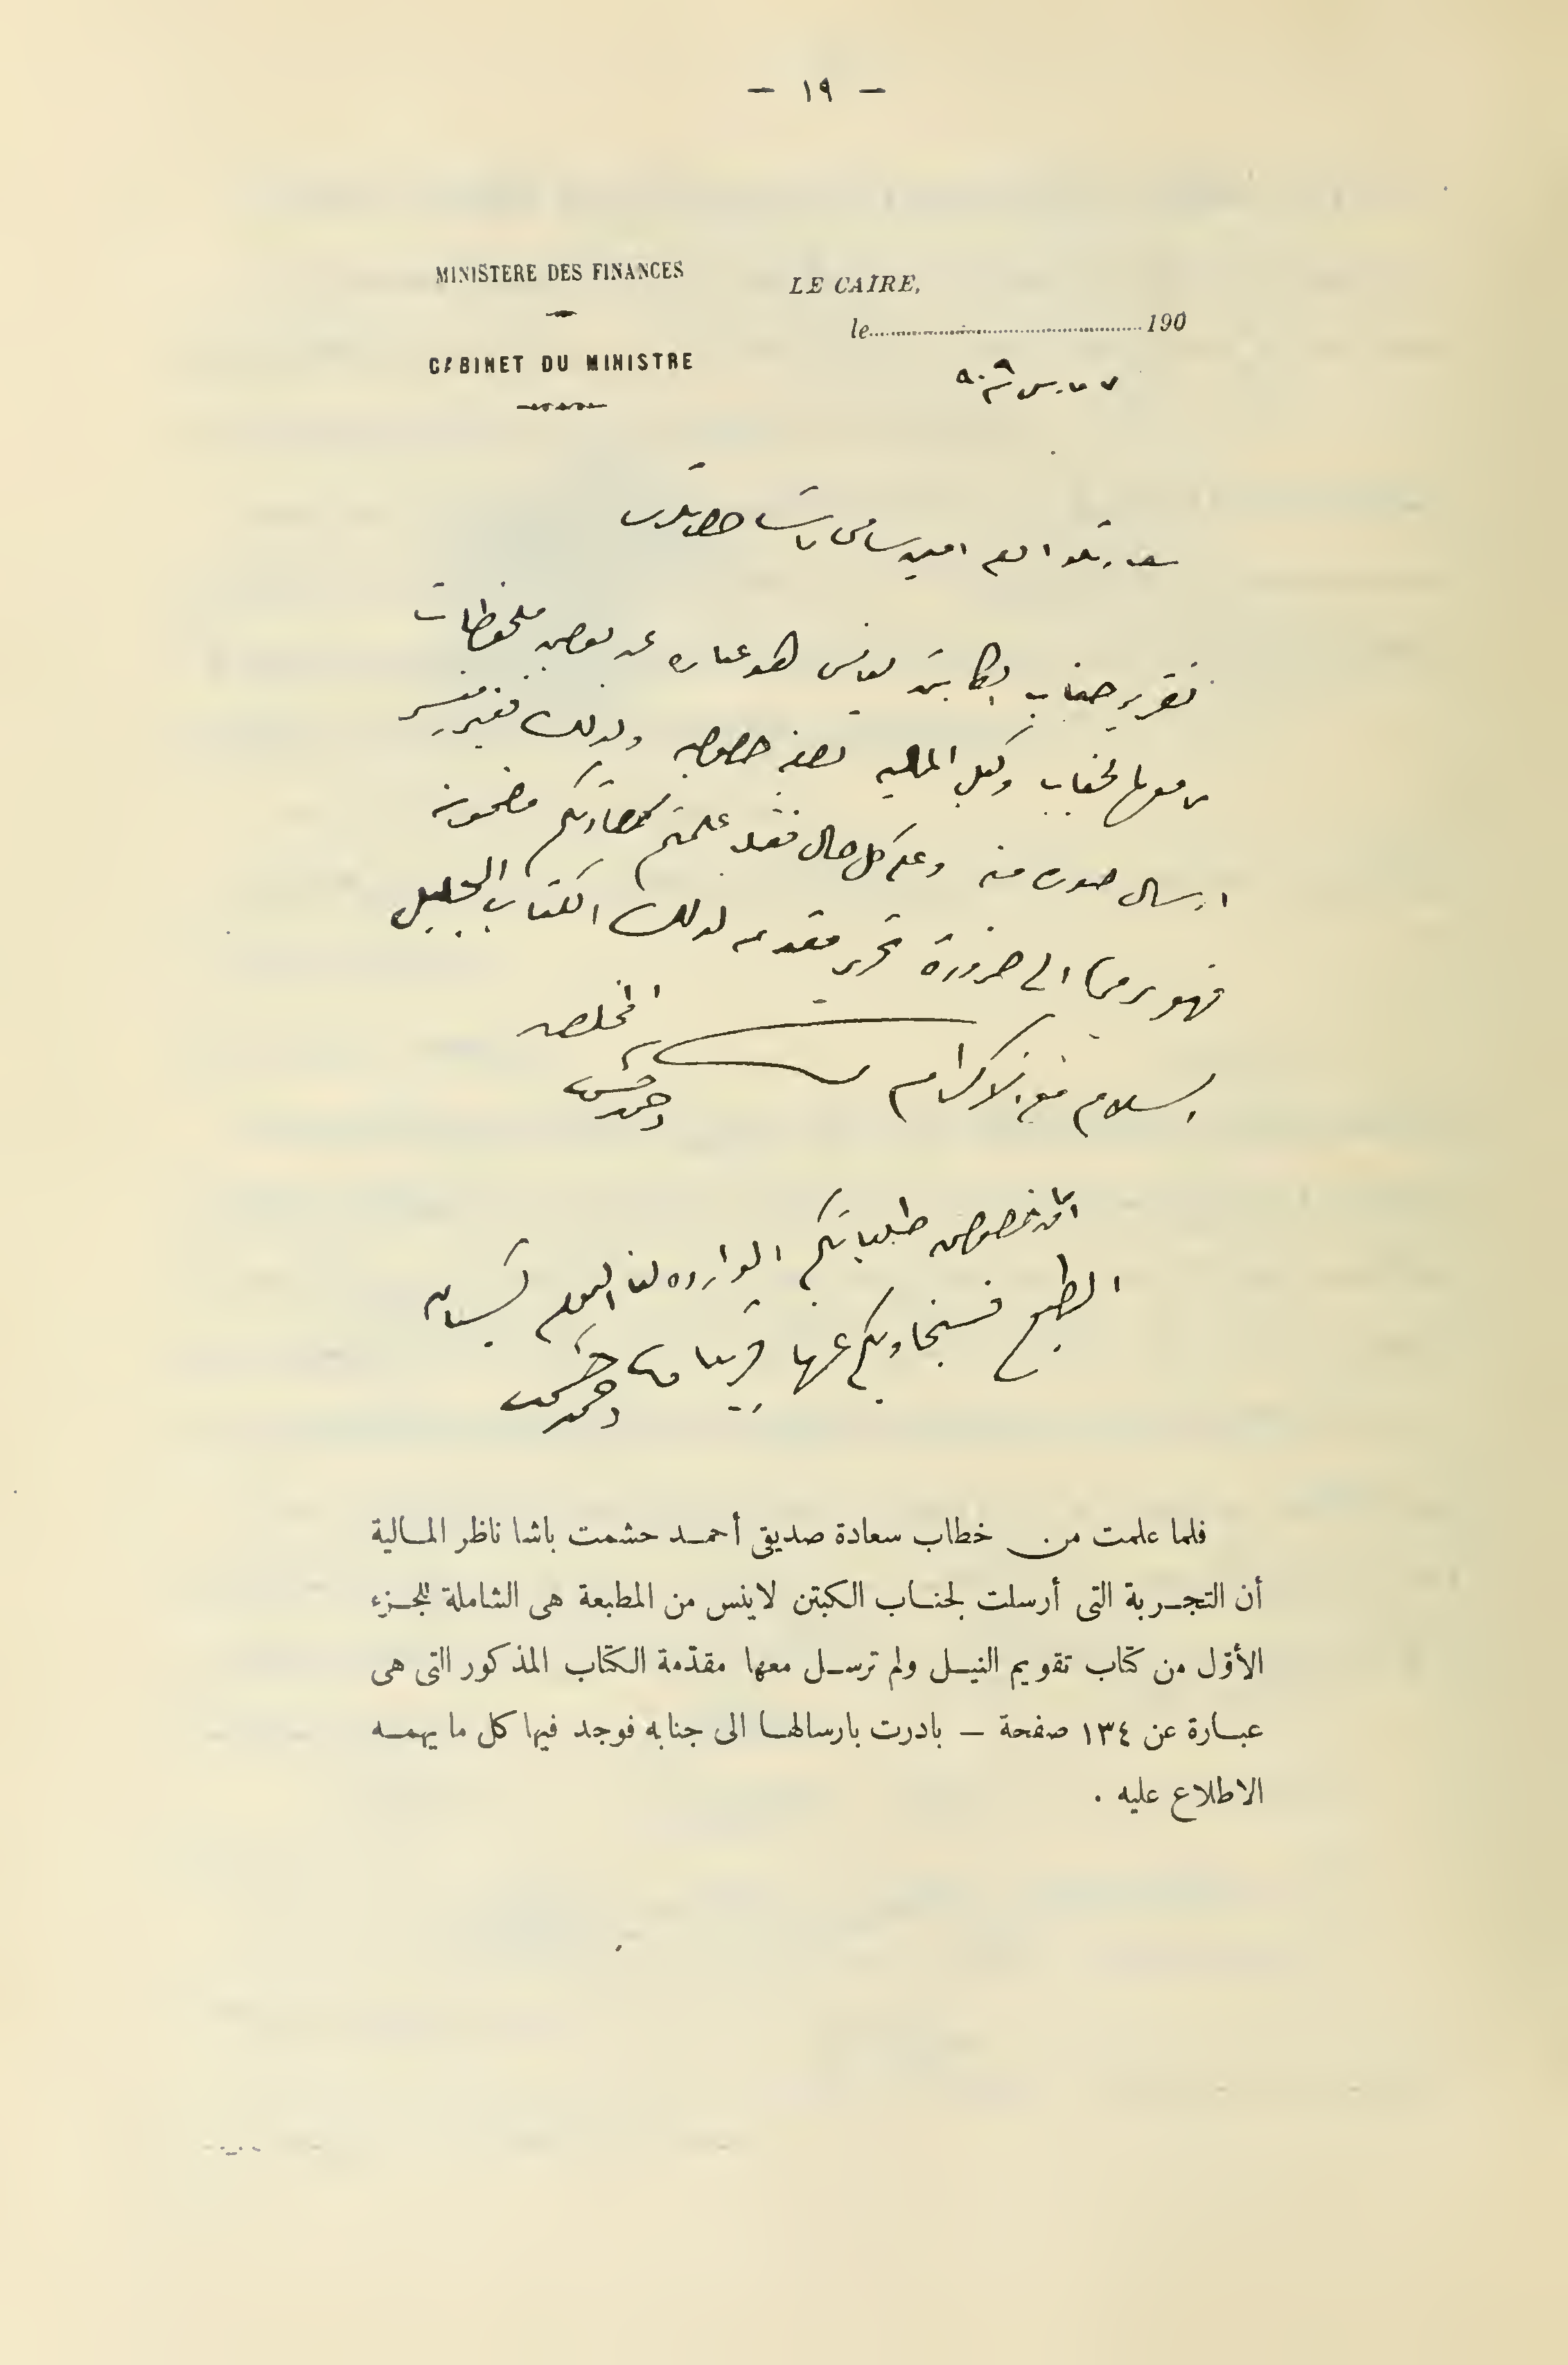 — ١٩ —
MINISTERE DES FINANCES
CABINET DU MINISTRE
LE CAIRE,
le 190
٧ مارس سنة ٩٠٩
سعادتلو افندم امين سامى باشا حضرتلرى
تقرير جناب الكابتن لاينس هو عباره عن بعض ملحوظات
رفعها لجناب وكيل الماليه بصفه خصوصيه ولذلك فغير متيسر
ارسال صوره منه وعلى كل حال فقد علمتم سعادتكم مضمونه
فهو يرمى الى ضرورة تحرير مقدمه لذلك الكتاب الجليل
السلام مع الاكرام
المخلص
احمد حشمت
اما بخصوص طلباتكم الوارده لنا اليوم بشأن
الطبع فسنجاوبكم عنها قريبا
احمد حشمت
فلما علمت من خطاب سعادة صديقى أحمد حشمت باشا ناظر المالية
أن التجربة التى أرسلت لجناب الكبتن لاينس من المطبعة هى الشاملة للجزء
الأوّل من كتاب تقويم النيل ولم ترسل معها مقدّمة الكتاب المذكور التى هى
عبارة عن ١٣٤ صفحة — بادرت بارسالها الى جنابه فوجد فيها كل ما يهمه
الاطلاع عليه .